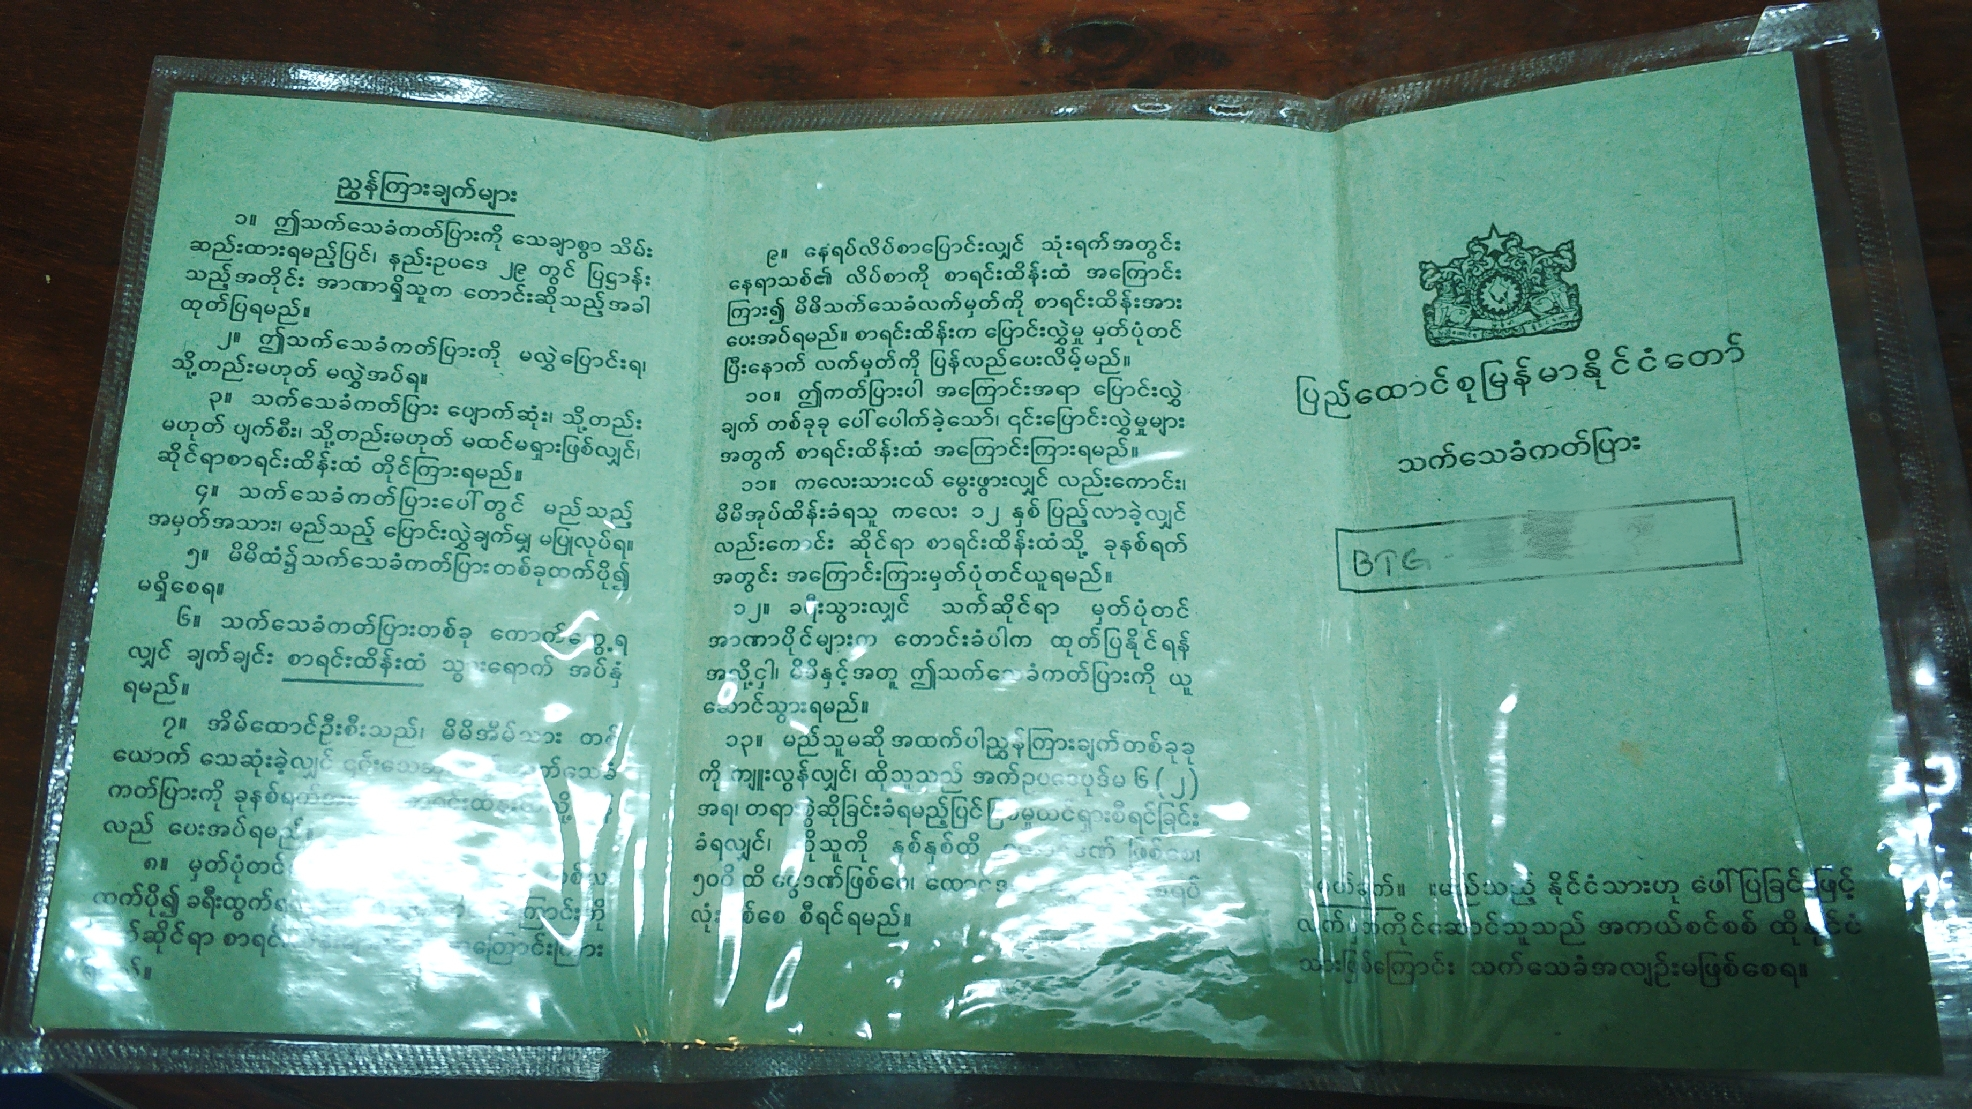 ညွှန်ကြားချက်များ
၁။ ဤသက်သေခံကတ်ပြားကို သေချာစွာ သိမ်း
ဆည်းထားရမည့်ပြင်၊ နည်းဥပဒေ ၂၉ တွင် ပြဋ္ဌာန်း
သည့်အတိုင်း အာဏာရှိသူက တောင်းဆိုသည့်အခါ
ထုတ်ပြရမည်။
၂။ ဤသက်သေခံကတ်ပြားကို မလွှဲပြောင်းရ၊
သို့တည်းမဟုတ် မလွှဲအပ်ရ။
၃။ သက်သေခံကတ်ပြား ပျောက်ဆုံး၊ သို့တည်း
မဟုတ် ပျက်စီး၊ သို့တည်းမဟုတ် မထင်မရှားဖြစ်လျှင်၊
ဆိုင်ရာစာရင်းထိန်းထံ တိုင်ကြားရမည်။
၄။ သက်သေခံကတ်ပြားပေါ်တွင် မည်သည့်
အမှတ်အသား၊ မည်သည့် ပြောင်းလွှဲချက်မျှ မပြုလုပ်ရ။
၅။ မိမိထံ၌သက်သေခံကတ်ပြားတစ်ခုထက်ပို၍
မရှိစေရ။
၆။ သက်သေခံကတ်ပြားတစ်ခု ကောက်တွေ့ရ
လျှင် ချက်ချင်း စာရင်းထိန်းထံ သွားရောက် အပ်နှံ
ရမည်။
၇။ အိမ်ထောင်ဦးစီးသည်၊ မိမိအိမ်သား တစ်
ယောက် သေဆုံးခဲ့လျှင်
ကတ်ပြားကို ခုနစ်ရက်
လည် ပေးအပ်ရမည်။
၈။ မှတ်ပုံတင်
ထက်ပို၍ ခရီးထွက်
ဆိုင်ရာ အကြောင်းကြား
၉။ နေရပ်လိပ်စာပြောင်းလျှင် သုံးရက်အတွင်း
နေရာသစ်၏ လိပ်စာကို စာရင်းထိန်းထံ အကြောင်း
ကြား၍ မိမိသက်သေခံလက်မှတ်ကို စာရင်းထိန်းအား
ပေးအပ်ရမည်။ စာရင်းထိန်းက ပြောင်းလွှဲမှု မှတ်ပုံတင်
ပြီးနောက် လက်မှတ်ကို ပြန်လည်ပေးလိမ့်မည်။
၁၀။ ဤကတ်ပြားပါ အကြောင်းအရာ ပြောင်းလွှဲ
ချက် တစ်ခုခု ပေါ်ပေါက်ခဲ့သော်၊ ၎င်းပြောင်းလွှဲမှုများ
အတွက် စာရင်းထိန်းထံ အကြောင်းကြားရမည်။
၁၁။ ကလေးသားငယ် မွေးဖွားလျှင် လည်းကောင်း၊
မိမိအုပ်ထိန်းခံရသူ ကလေး ၁၂ နှစ် ပြည့်လာခဲ့လျှင်
လည်းကောင်း ဆိုင်ရာ စာရင်းထိန်းထံသို့ ခုနစ်ရက်
အတွင်း အကြောင်းကြားမှတ်ပုံတင်ယူရမည်။
၁၂။ ခရီးသွားလျှင် သက်ဆိုင်ရာ မှတ်ပုံတင်
အာဏာပိုင်များက တောင်းခံပါက ထုတ်ပြနိုင်ရန်
အလို့ငှါ၊ မိမိနှင့်အတူ ဤသက်သေခံကတ်ပြားကို ယူ
ဆောင်သွားရမည်။
၁၃။ မည်သူမဆို အထက်ပါညွှန်ကြားချက်တစ်ခုခု
ကို ကျူးလွန်လျှင်၊ ထိုသူသည် အက်ဥပဒေပုဒ်မ ၆ (၂)
အရ၊ တရားစွဲဆိုခြင်းခံရမည့်ပြင် ပြစ်မှုထင်ရှားစီရင်ခြင်း
ခံရလျှင်၊ ထိုသူကို နှစ်နှစ်ထိ ထောင်ဒဏ် ဖြစ်စေ၊
၅၀၀ိ ထိ ငွေဒဏ်ဖြစ်စေ၊
စီရင်ရမည်။
ပြည်ထောင်စုမြန်မာနိုင်ငံတော်
သက်သေခံကတ်ပြား
BTG
မှတ်ချက်။ ။မည်သည့် နိုင်ငံသားဟု ဖေါ်ပြခြင်းဖြင့်
လက်မှတ်ကိုင်ဆောင်သူသည် အကယ်စင်စစ် ထိုနိုင်ငံ
သားဖြစ်ကြောင်း သက်သေခံအလျဉ်းမဖြစ်စေရ။